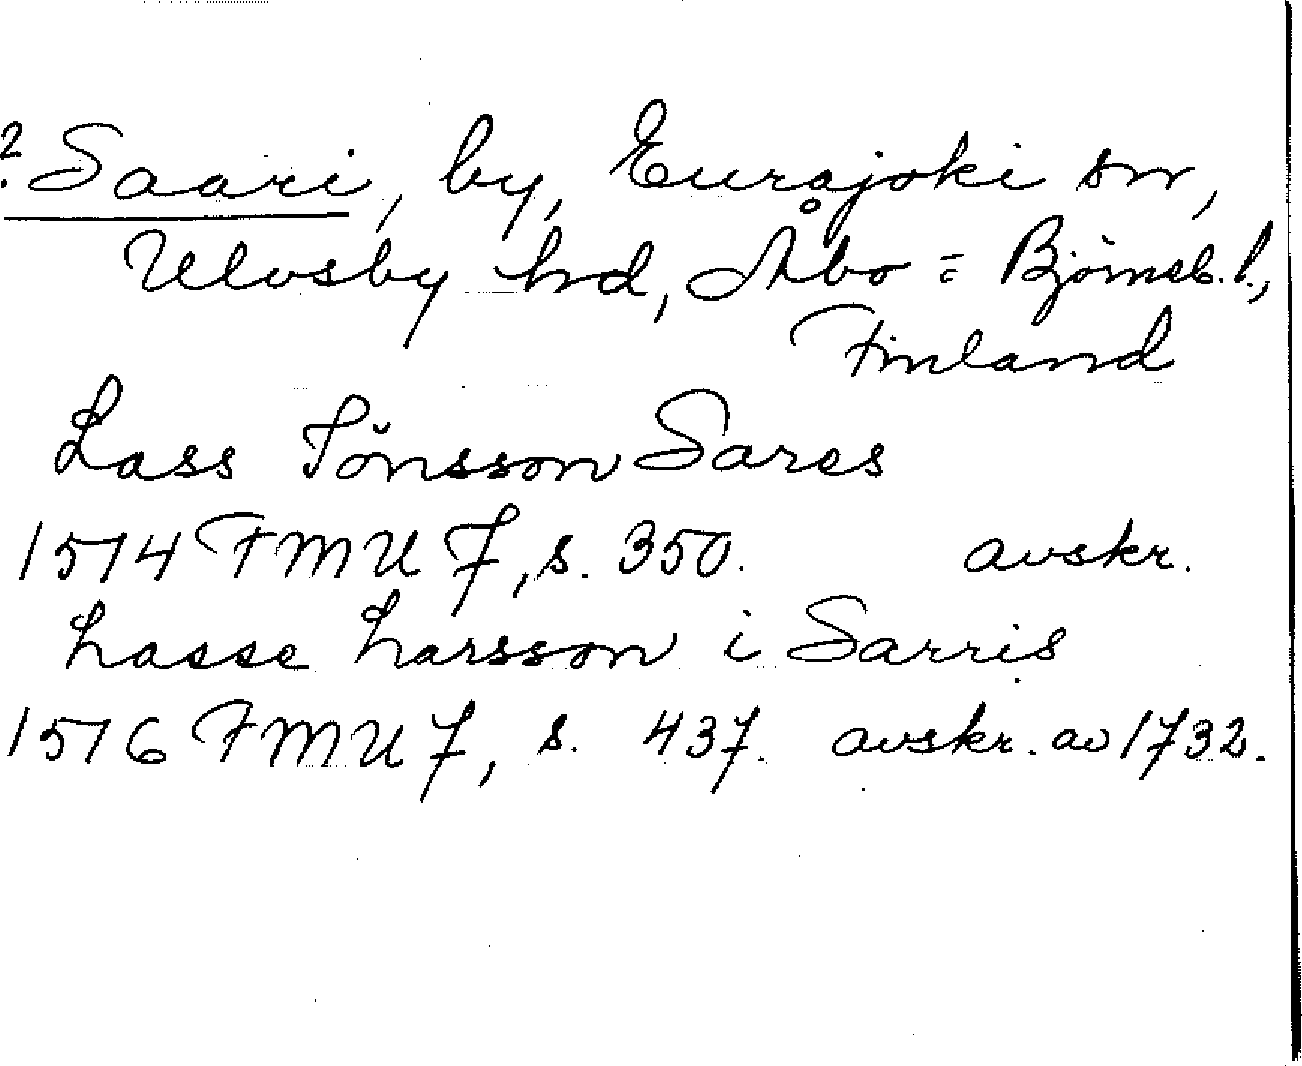 ? Saari, by, Eurajoki sn,
Ulvsby hd, Åbo = Björneb. l.,
Finland
Lass Jönsson Sares
1514 FMU 7, s. 350. avskr.
Lasse Larsson i Sarris
1516 FMU 7, s. 437. avskr. av 1732.